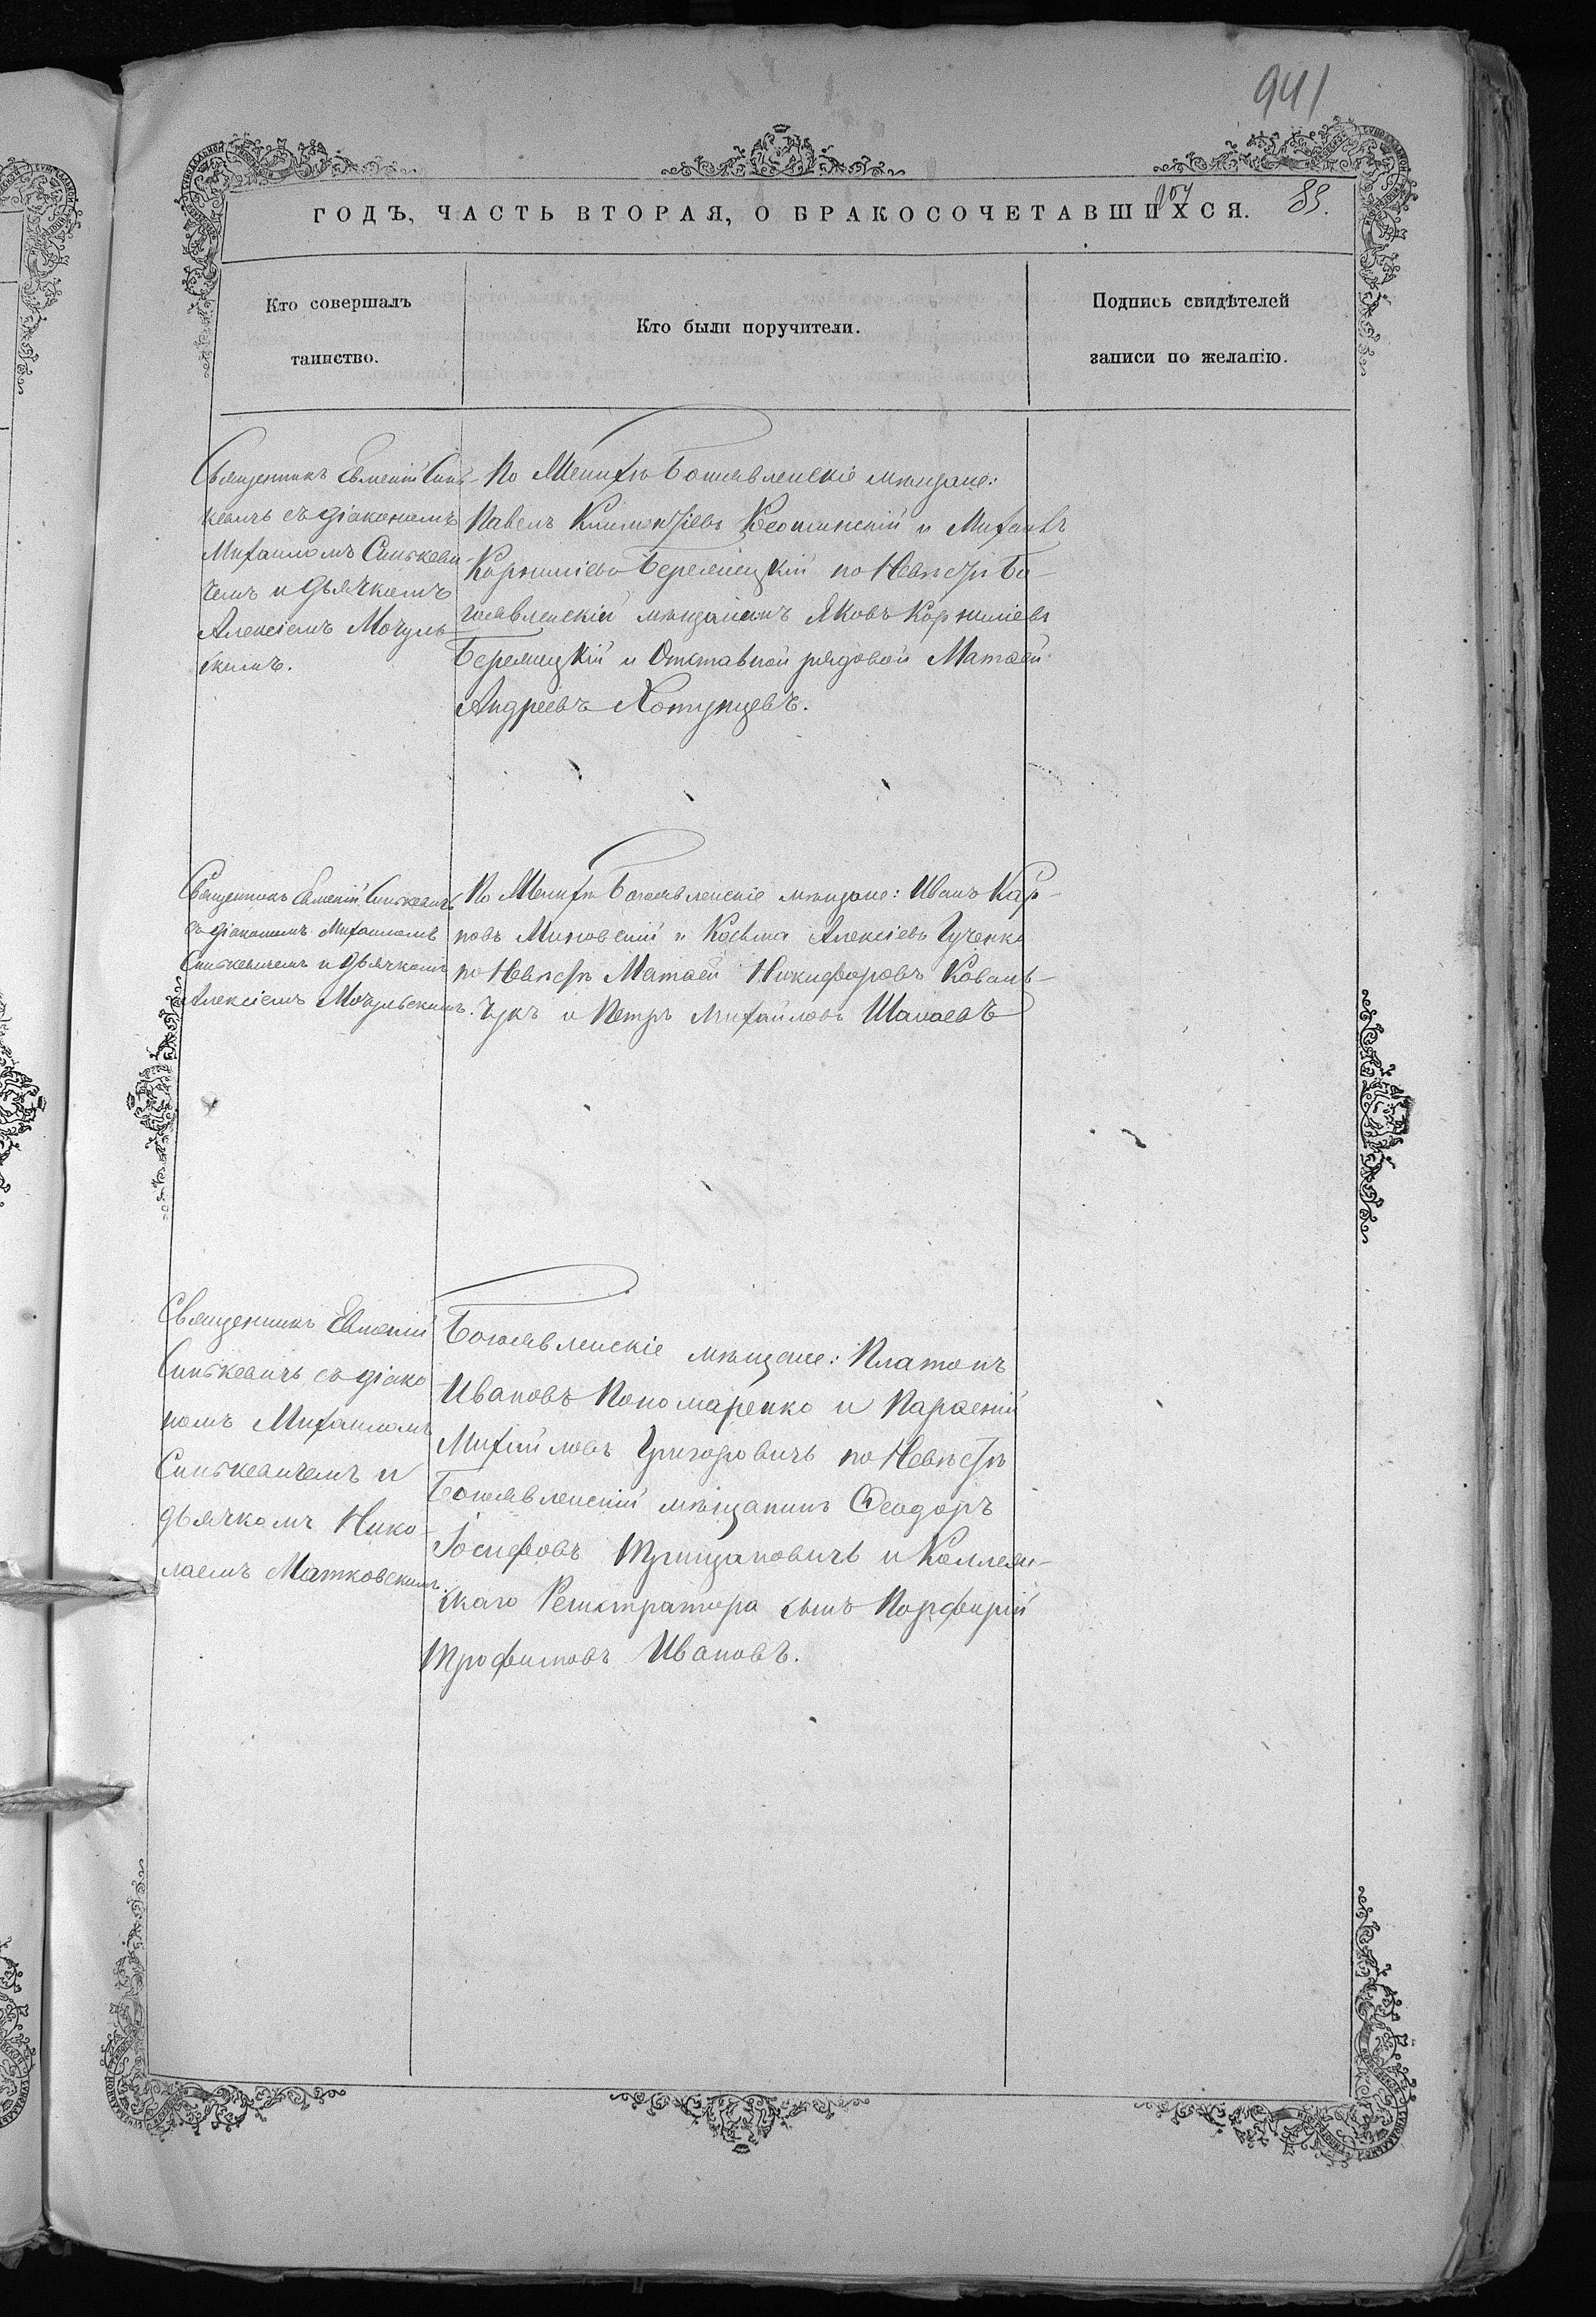 941
ГОДЪ, ЧАСТЬ ВТОРАЯ, О БРАКОСОЧЕТАВШИХСЯ.
89.
Кто совершалъ
таинство.
Кто были поручители.
Подпись свидѣтелей
записи по желанію.
Священникъ Евменій Синь-
кевичъ съ діакономъ
Михаиломъ Синькеви-
чемъ и дьячкомъ
Алексіемъ Мочуль-
скимъ.
По Женихѣ Богоявленскіе мѣщане:
Павелъ Климентіевъ и Михаилъ
Корниліевъ Беремецкій по Невѣстѣ Бо-
гоявленскій мѣщанинъ Яковъ Корниліевъ
Беремецкій и Отставной рядовой Матѳей
Андреевъ Хотунцевъ.
Священникъ Евменій Синькевичъ
съ діакономъ Михаиломъ
Синькевичемъ и дьячкомъ
Алексіемъ Мочульскимъ.
По Женихѣ Богоявленскіе мѣщане: Иванъ Кар-
повъ Миновскій и Косьма Алексіевъ Гученко
по Невѣстѣ Матѳей Никифоровъ Коваль-
чукъ и Петръ Михайловъ Шапаевъ
Священникъ Евменій
Синькевичъ съ діако
номъ Михаиломъ
Синькевичемъ и
дьячкомъ Нико-
лаемъ Матковскимъ.
Богоявленскіе мѣщане: Платонъ
Ивановъ Пономаренко и Парѳеній
Михайловъ Григоровичъ по Невѣстѣ
Богоявленскій мѣщанинъ Ѳеодоръ
Іосифовъ Трищановичъ и Коллеж-
скаго Регистратора сынъ Порфирій
Трофимовъ Ивановъ.